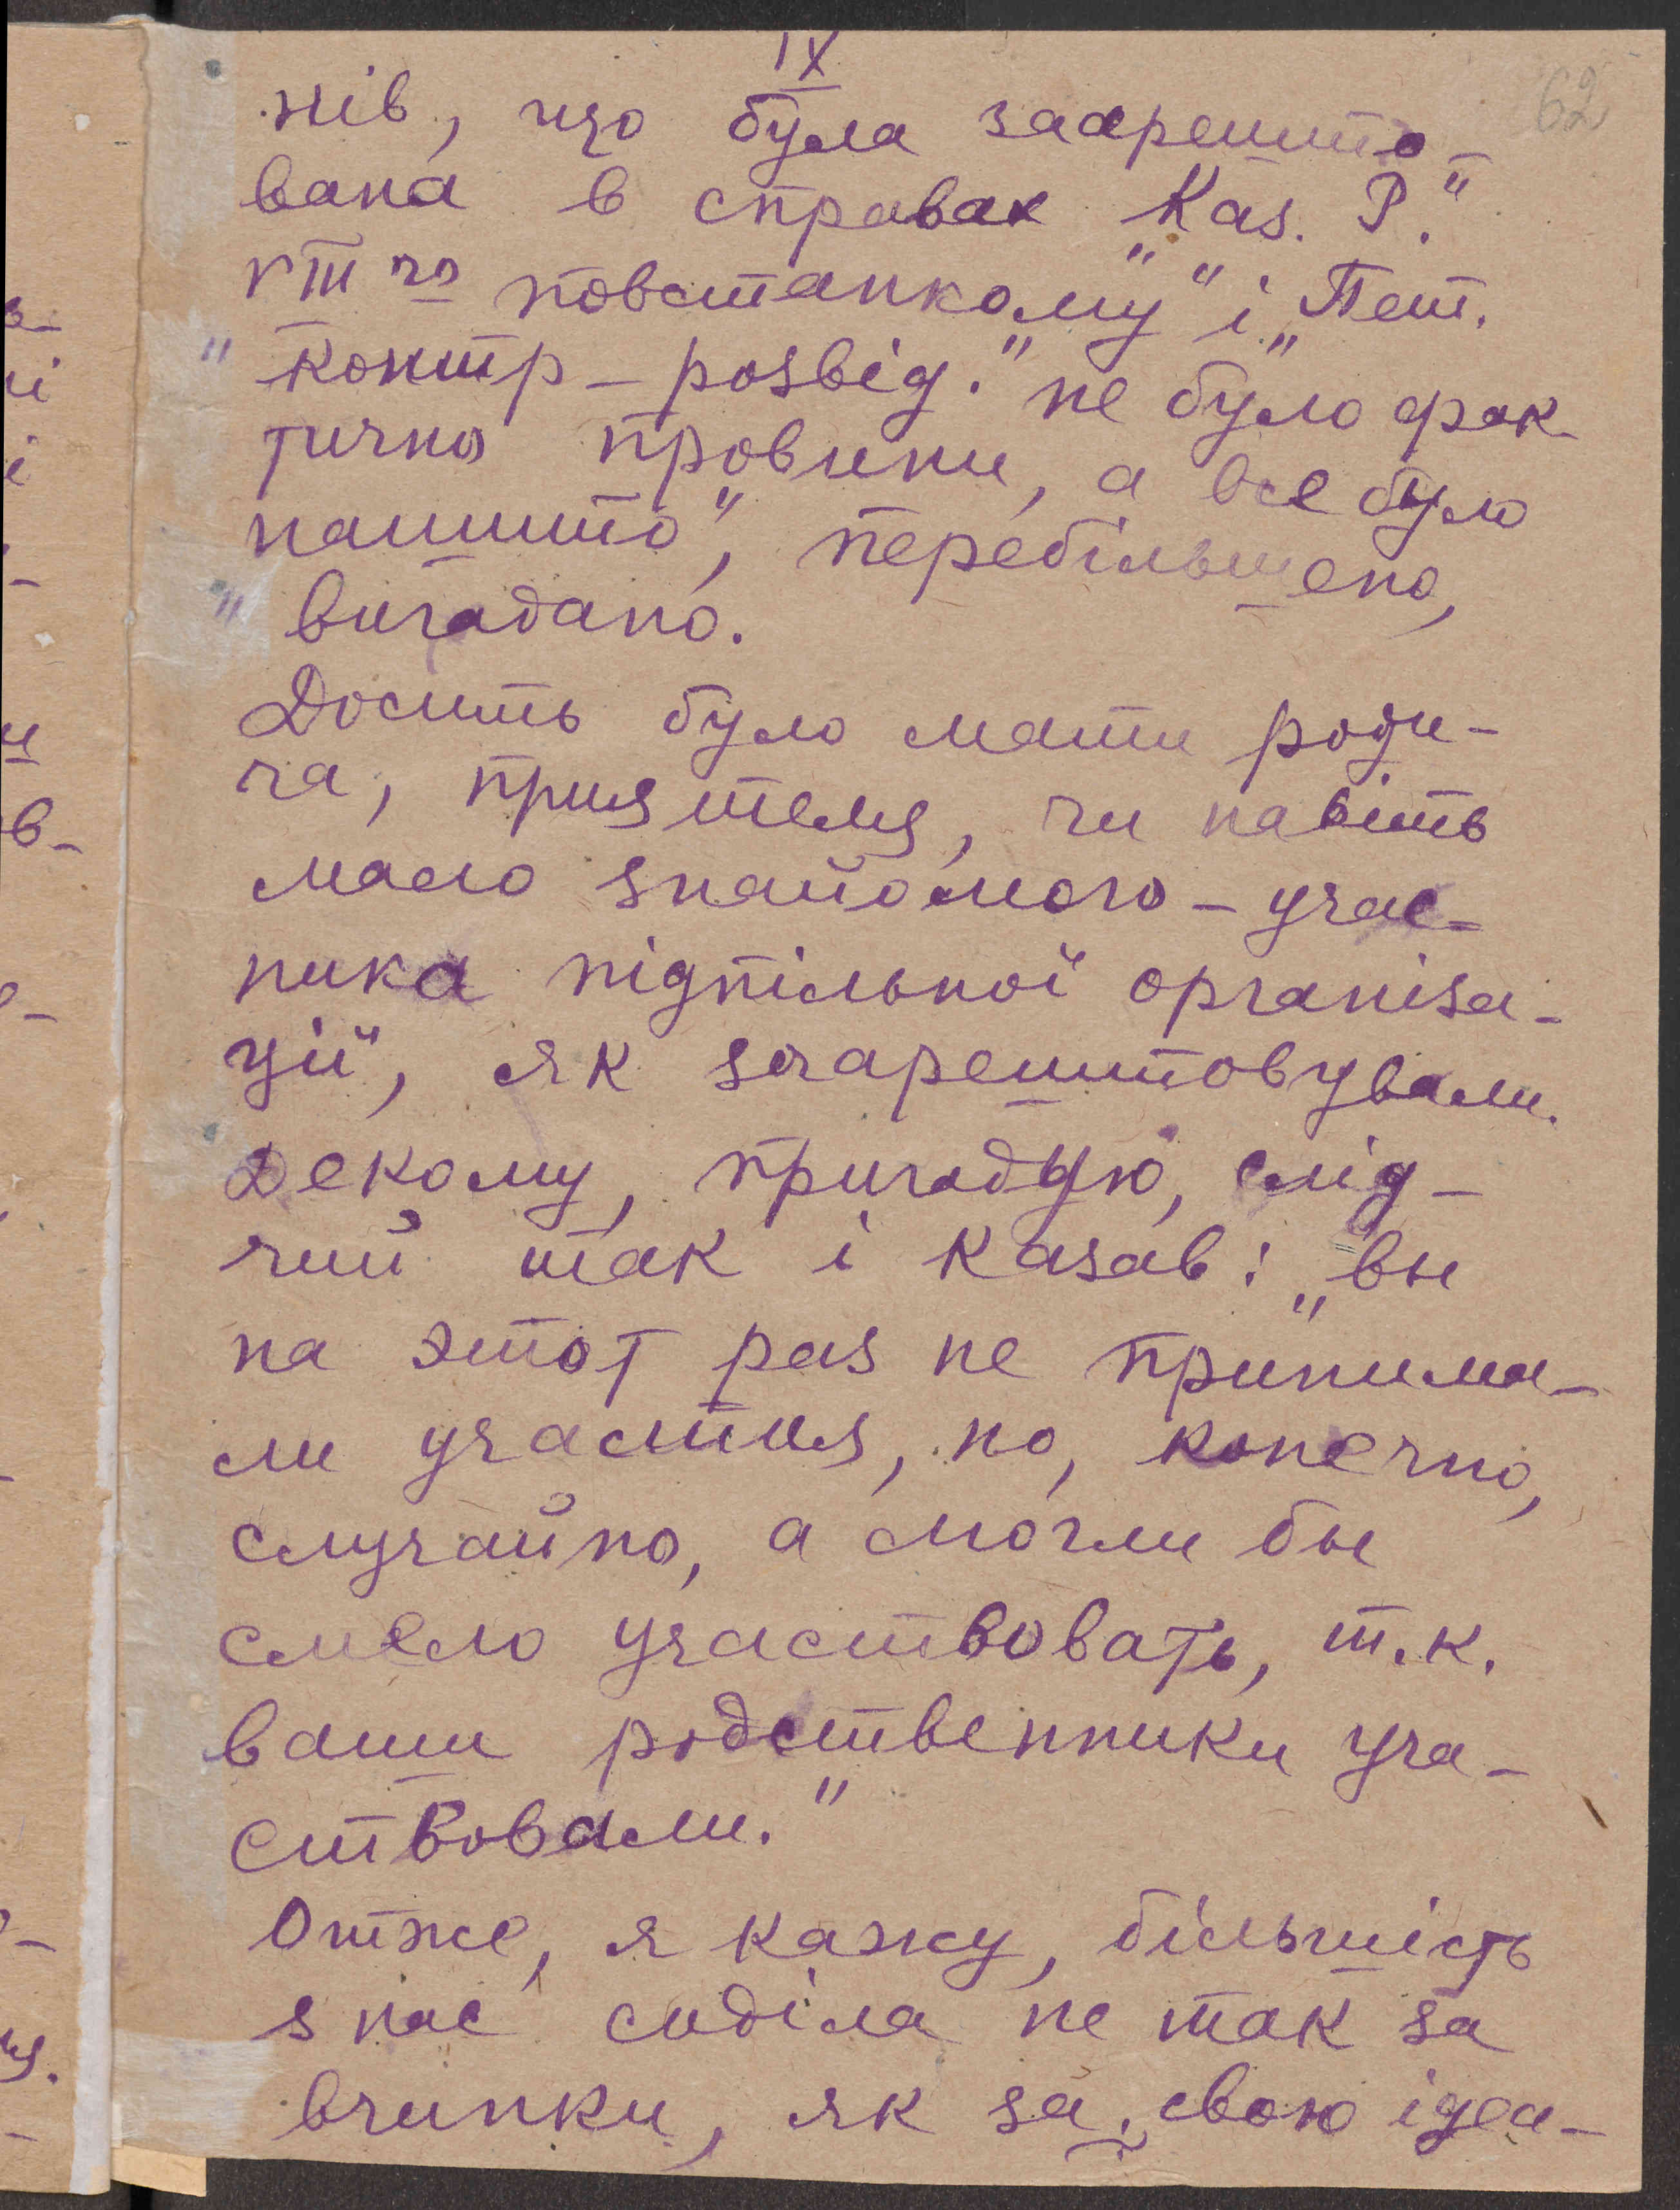 IX
62
нів, що була заарешто-
вана в справах „Каз. Р."
„повстанкому" і „Пет.
контр-розвід." не було фак-
тично провини, а все було
„нашито", перебільшено,
вигадано.
Досить було мати роди-
ча, приятеля, чи навіть
мало знайомого - учас-
ника підпільної організа-
ції, як заарештовували.
Декому, пригадую, слід-
чий так і казав: „вы
на этот раз не принима-
ли участия, но, конечно,
случайно, а могли бы
смело участвовать, т.к.
ваши родственники уча-
ствовали."
Отже, я кажу, більшість
з нас сиділа не так за
вчинки, як за свою ідеа-